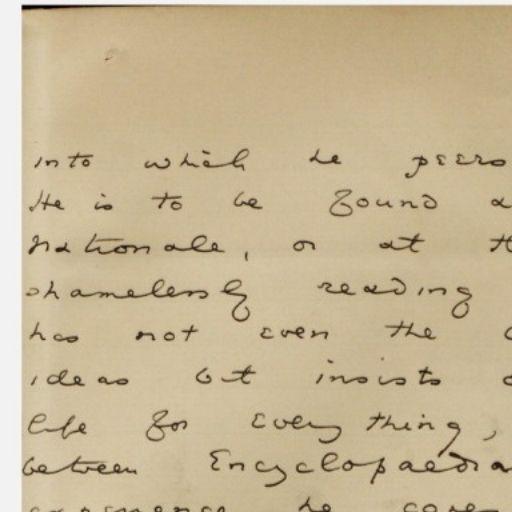 into which he peers
He is to be found a
Nationale, or at th
shamelessly reading
has not even the
ideas but insists
life for every thing,
between Encyclopaedia
he